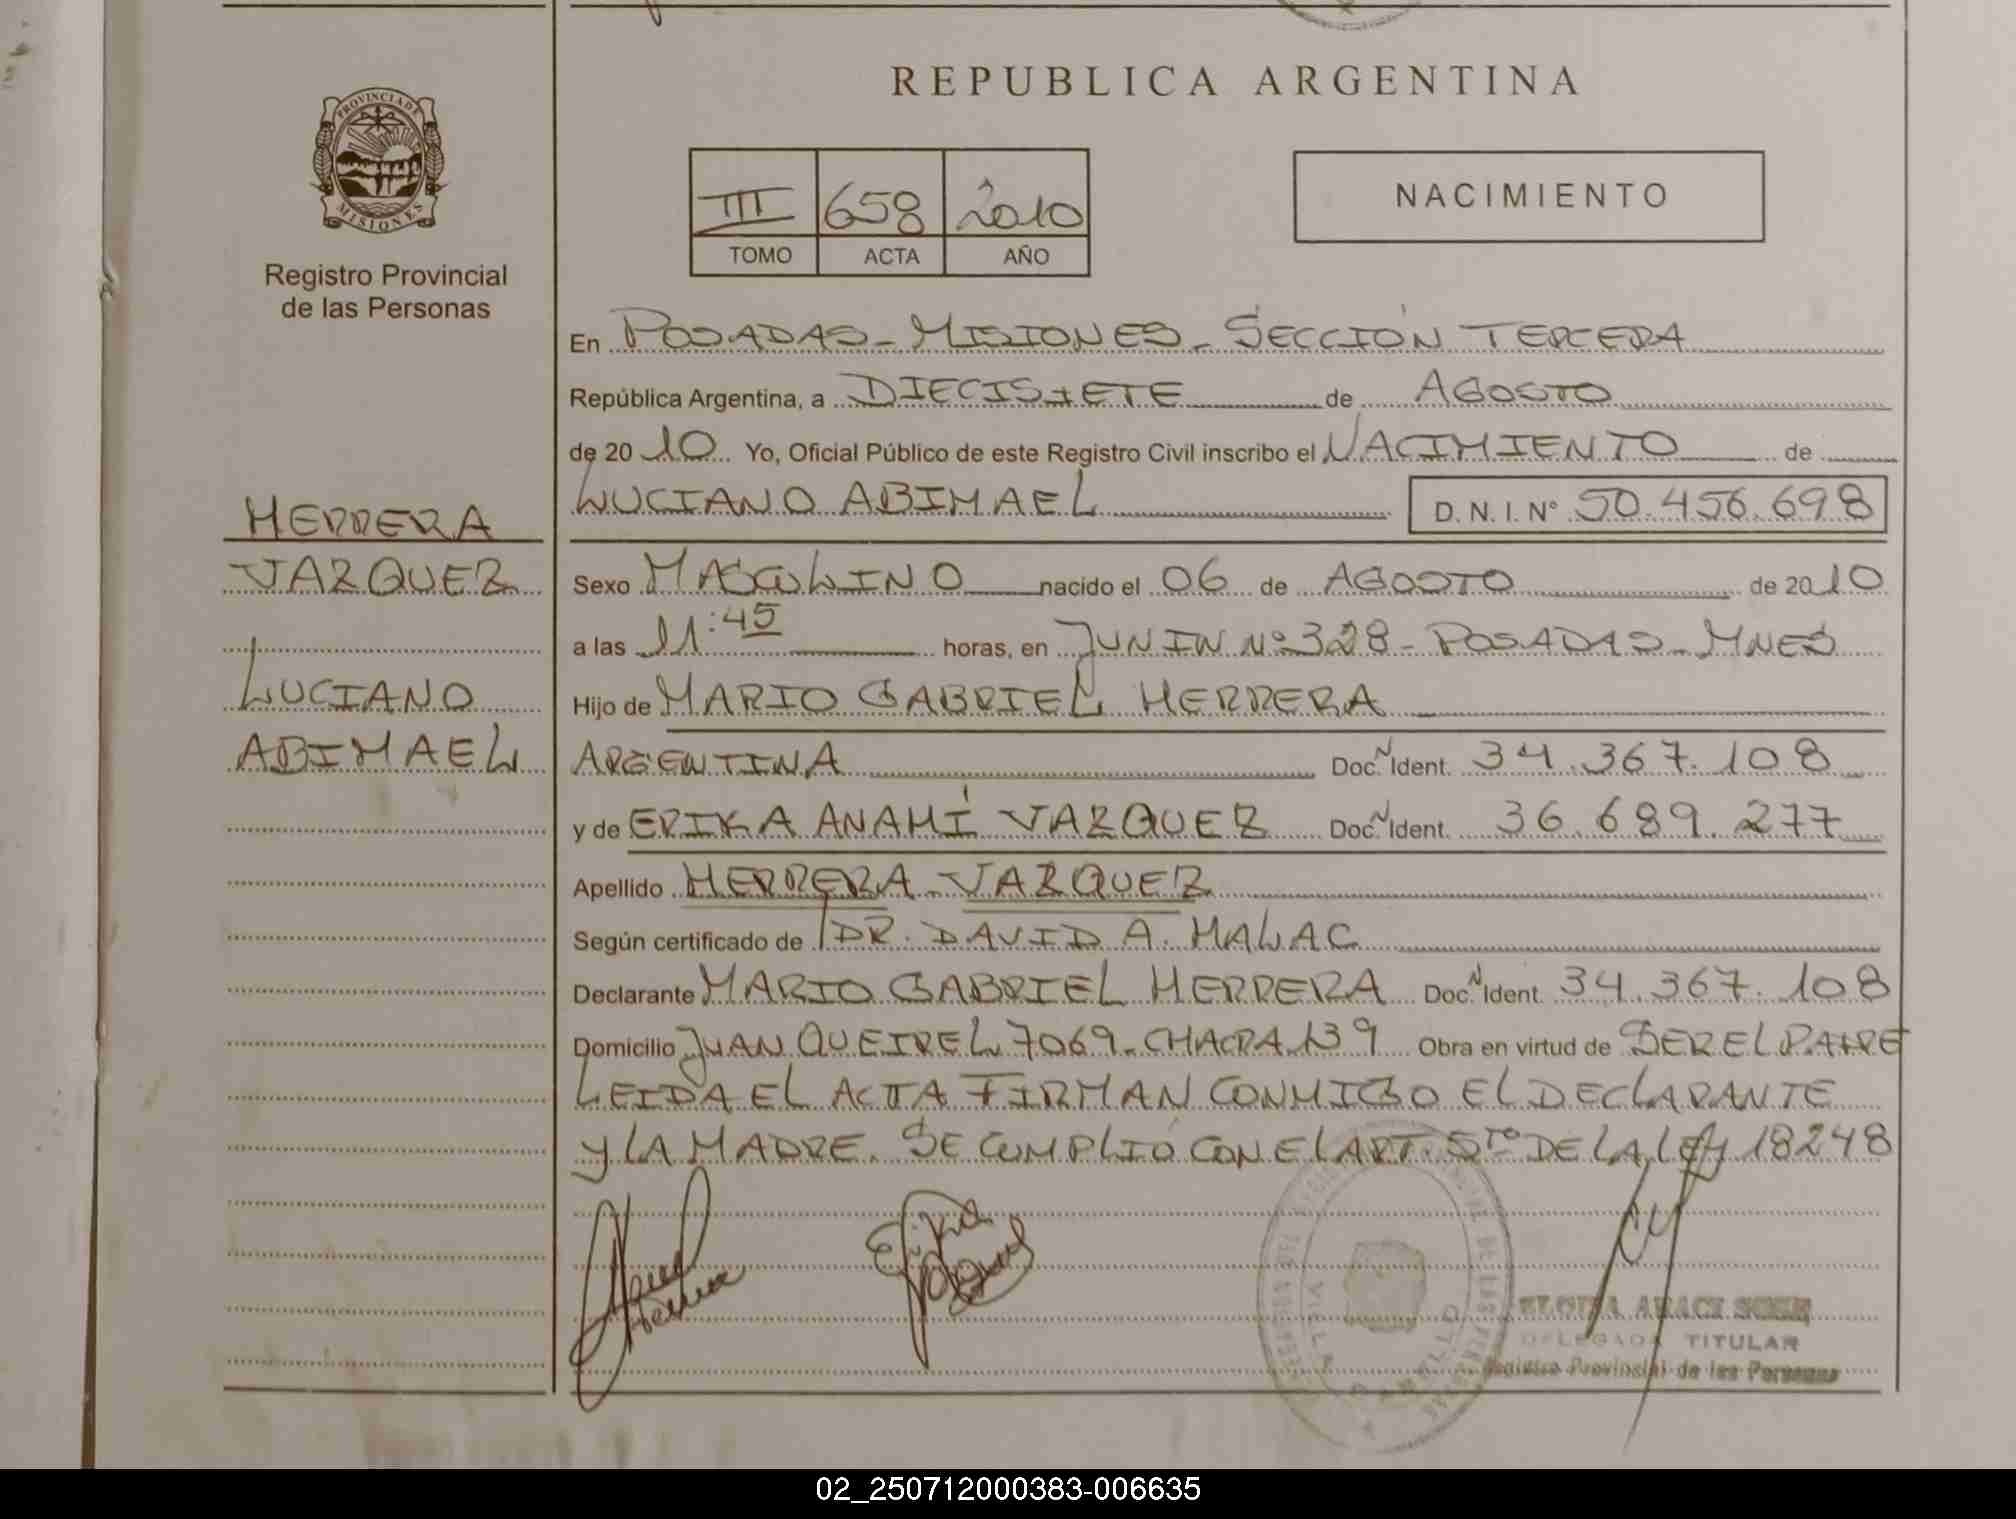 REPUBLICA ARGENTINA
PROVINCIA DE
MISIONES
Registro Provincial
de las Personas
III 658 2010
TOMO ACTA AÑO
NACIMIENTO
HERRERA
VAZQUEZ
LUCIANO
ABIMAEL
En POSADAS - MISIONES - SECCIÓN TERCERA
República Argentina, a DIECISIETE de AGOSTO
de 2010 Yo, Oficial Público de este Registro Civil inscribo el NACIMIENTO de
LUCIANO ABIMAEL D. N. I. Nº 50.456.698
Sexo MASCULINO nacido el 06 de AGOSTO de 2010
a las 11:45 horas, en JUNIN Nº 328 - POSADAS - MNES
Hijo de MARIO GABRIEL HERRERA
ARGENTINA Doc. N Ident. 34.367.108
y de ERIKA ANAHÍ VAZQUEZ Doc. N Ident. 36.689.277
Apellido HERRERA VAZQUEZ
Según certificado de DR. DAVID A. MALAC
Declarante MARIO GABRIEL HERRERA Doc. N Ident. 34.367.108
Domicilio JUAN QUEIREL 7069 - CHACRA 139 Obra en virtud de SER EL PADRE
LEIDA EL ACTA FIRMAN CONMIGO EL DECLARANTE
Y LA MADRE. SE CUMPLIÓ CON EL ART. 5TO DE LA LEY 18248
Erika
TITULAR
Registro Provincial de las Personas
02_250712000383-006635